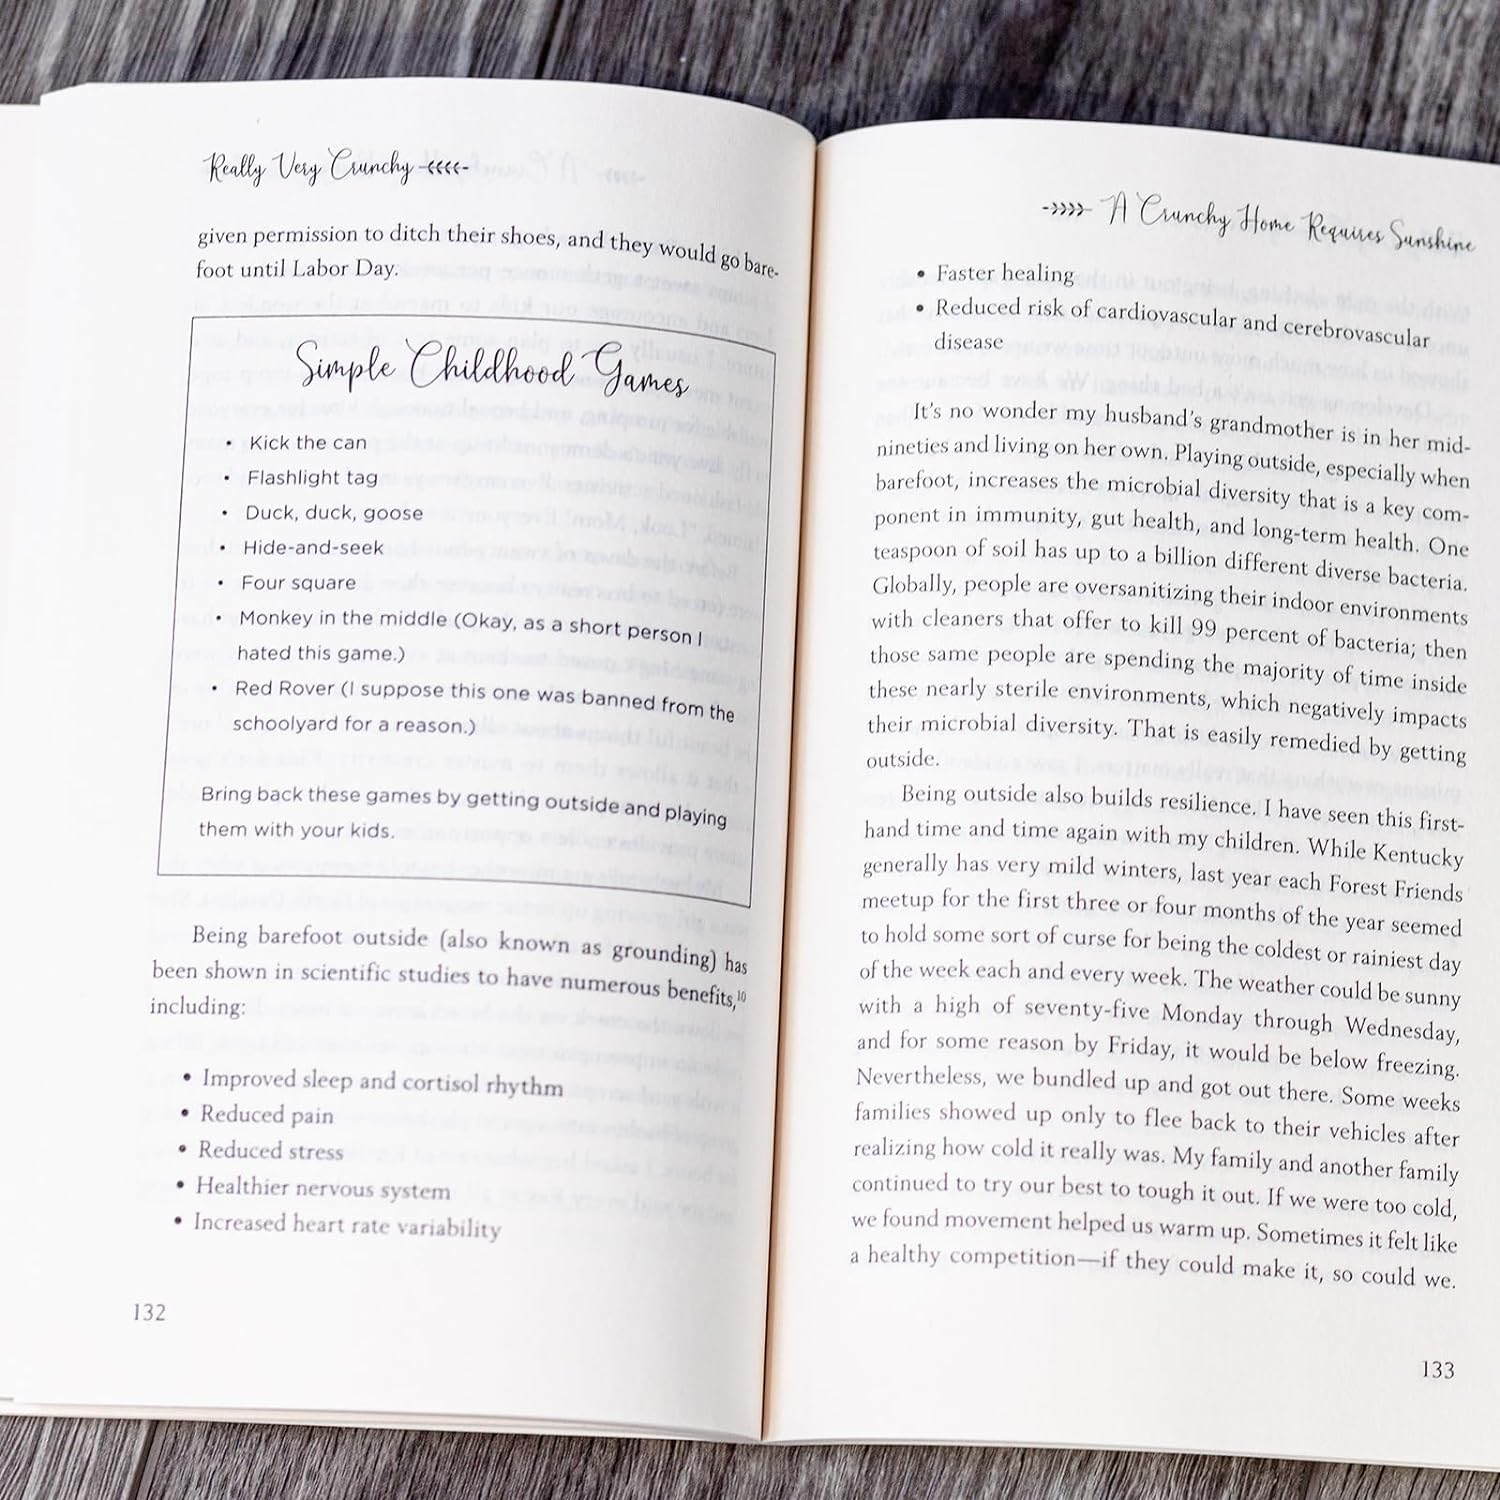 Really Very Crunchy
given permission to ditch their shoes, and they would go bare-
foot until Labor Day.
Simple Childhood Games
• Kick the can
• Flashlight tag
• Duck, duck, goose
• Hide-and-seek
• Four square
• Monkey in the middle (Okay, as a short person I
hated this game.)
• Red Rover (I suppose this one was banned from the
schoolyard for a reason.)
Bring back these games by getting outside and playing
them with your kids.
Being barefoot outside (also known as grounding) has
been shown in scientific studies to have numerous benefits,¹⁰
including:
• Improved sleep and cortisol rhythm
• Reduced pain
• Reduced stress
• Healthier nervous system
• Increased heart rate variability
132
A Crunchy Home Requires Sunshine
• Faster healing
• Reduced risk of cardiovascular and cerebrovascular
disease
It's no wonder my husband's grandmother is in her mid-
nineties and living on her own. Playing outside, especially when
barefoot, increases the microbial diversity that is a key com-
ponent in immunity, gut health, and long-term health. One
teaspoon of soil has up to a billion different diverse bacteria.
Globally, people are oversanitizing their indoor environments
with cleaners that offer to kill 99 percent of bacteria; then
those same people are spending the majority of time inside
these nearly sterile environments, which negatively impacts
their microbial diversity. That is easily remedied by getting
outside.
Being outside also builds resilience. I have seen this first-
hand time and time again with my children. While Kentucky
generally has very mild winters, last year each Forest Friends
meetup for the first three or four months of the year seemed
to hold some sort of curse for being the coldest or rainiest day
of the week each and every week. The weather could be sunny
with a high of seventy-five Monday through Wednesday,
and for some reason by Friday, it would be below freezing.
Nevertheless, we bundled up and got out there. Some weeks
families showed up only to flee back to their vehicles after
realizing how cold it really was. My family and another family
continued to try our best to tough it out. If we were too cold,
we found movement helped us warm up. Sometimes it felt like
a healthy competition—if they could make it, so could we.
133